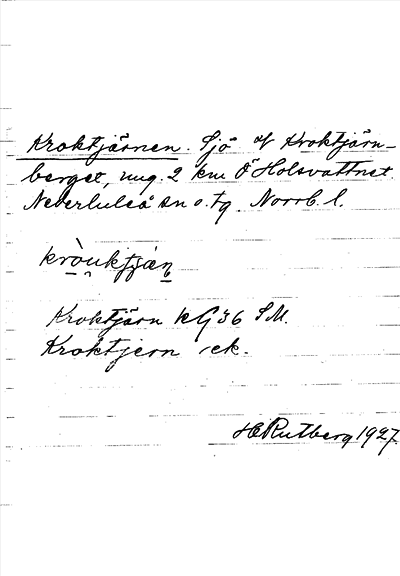 Kroktjärnen. Sjö V Kroktjärn-
berget, ung. 2 km Ö Holsvattnet.
Nederluleå sn o. tg. Norrb. l.
Kroktjärn kG 36 SM.
Kroktjern ek.
HRutberg 1927.